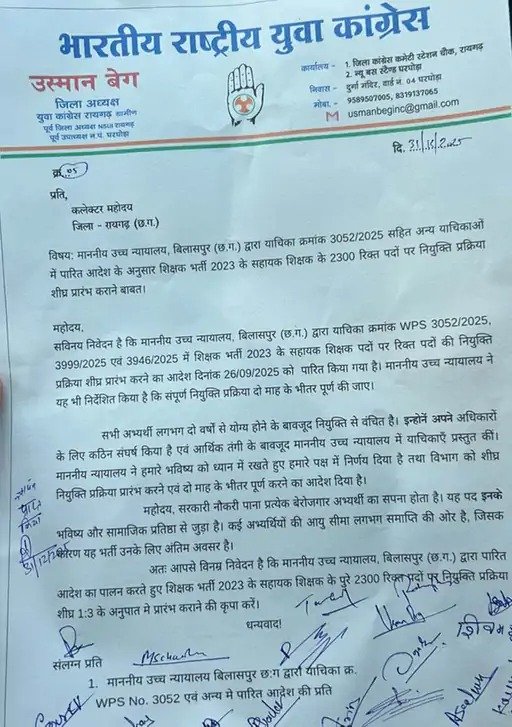 भारतीय राष्ट्रीय युवा कांग्रेस
उस्मान बेग
जिला अध्यक्ष
युवा कांग्रेस रायगढ़ ग्रामीण
पूर्व जिला अध्यक्ष NSUI रायगढ़
पूर्व उपाध्यक्ष न.पं. घरघोड़ा
कार्यालय - 1. जिला कांग्रेस कमेटी स्टेशन चौक, रायगढ़
2. न्यू बस स्टैण्ड घरघोड़ा
निवास - दुर्गा मंदिर, वार्ड नं. 04 घरघोड़ा
मोबा. - 9589507005, 8319137065
usmanbeginc@gmail.com
दि. 31/12/2025
क्र. 05
प्रति,
कलेक्टर महोदय
जिला - रायगढ़ (छ.ग.)
विषय: माननीय उच्च न्यायालय, बिलासपुर (छ.ग.) द्वारा याचिका क्रमांक 3052/2025 सहित अन्य याचिकाओं
में पारित आदेश के अनुसार शिक्षक भर्ती 2023 के सहायक शिक्षक के 2300 रिक्त पदों पर नियुक्ति प्रक्रिया
शीघ्र प्रारंभ कराने बाबत।
महोदय,
सविनय निवेदन है कि माननीय उच्च न्यायालय, बिलासपुर (छ.ग.) द्वारा याचिका क्रमांक WPS 3052/2025,
3999/2025 एवं 3946/2025 में शिक्षक भर्ती 2023 के सहायक शिक्षक पदों पर रिक्त पदों की नियुक्ति
प्रक्रिया शीघ्र प्रारंभ करने का आदेश दिनांक 26/09/2025 को पारित किया गया है। माननीय उच्च न्यायालय ने
यह भी निर्देशित किया है कि संपूर्ण नियुक्ति प्रक्रिया दो माह के भीतर पूर्ण की जाए।
सभी अभ्यर्थी लगभग दो वर्षों से योग्य होने के बावजूद नियुक्ति से वंचित है। इन्होनें अपने अधिकारों
के लिए कठिन संघर्ष किया है एवं आर्थिक तंगी के बावजूद माननीय उच्च न्यायालय में याचिकाएँ प्रस्तुत कीं।
माननीय न्यायालय ने हमारे भविष्य को ध्यान में रखते हुए हमारे पक्ष में निर्णय दिया है तथा विभाग को शीघ्र
नियुक्ति प्रक्रिया प्रारंभ करने एवं दो माह के भीतर पूर्ण करने का आदेश दिया है।
महोदय, सरकारी नौकरी पाना प्रत्येक बेरोजगार अभ्यर्थी का सपना होता है। यह पद इनके
भविष्य और सामाजिक प्रतिष्ठा से जुड़ा है। कई अभ्यर्थियों की आयु सीमा लगभग समाप्ति की ओर है, जिसक
कारण यह भर्ती उनके लिए अंतिम अवसर है।
अतः आपसे विनम्र निवेदन है कि माननीय उच्च न्यायालय, बिलासपुर (छ.ग.) द्वारा पारित
आदेश का पालन करते हुए शिक्षक भर्ती 2023 के सहायक शिक्षक के पुरे 2300 रिक्त पदों पर नियुक्ति प्रक्रिया
शीघ्र 1:3 के अनुपात मे प्रारंभ कराने की कृपा करें।
धन्यवाद!
संलग्न प्रति
1. माननीय उच्च न्यायालय बिलासपुर छ:ग द्वारा याचिका क्र.
WPS No. 3052 एवं अन्य मे पारित आदेश की प्रति